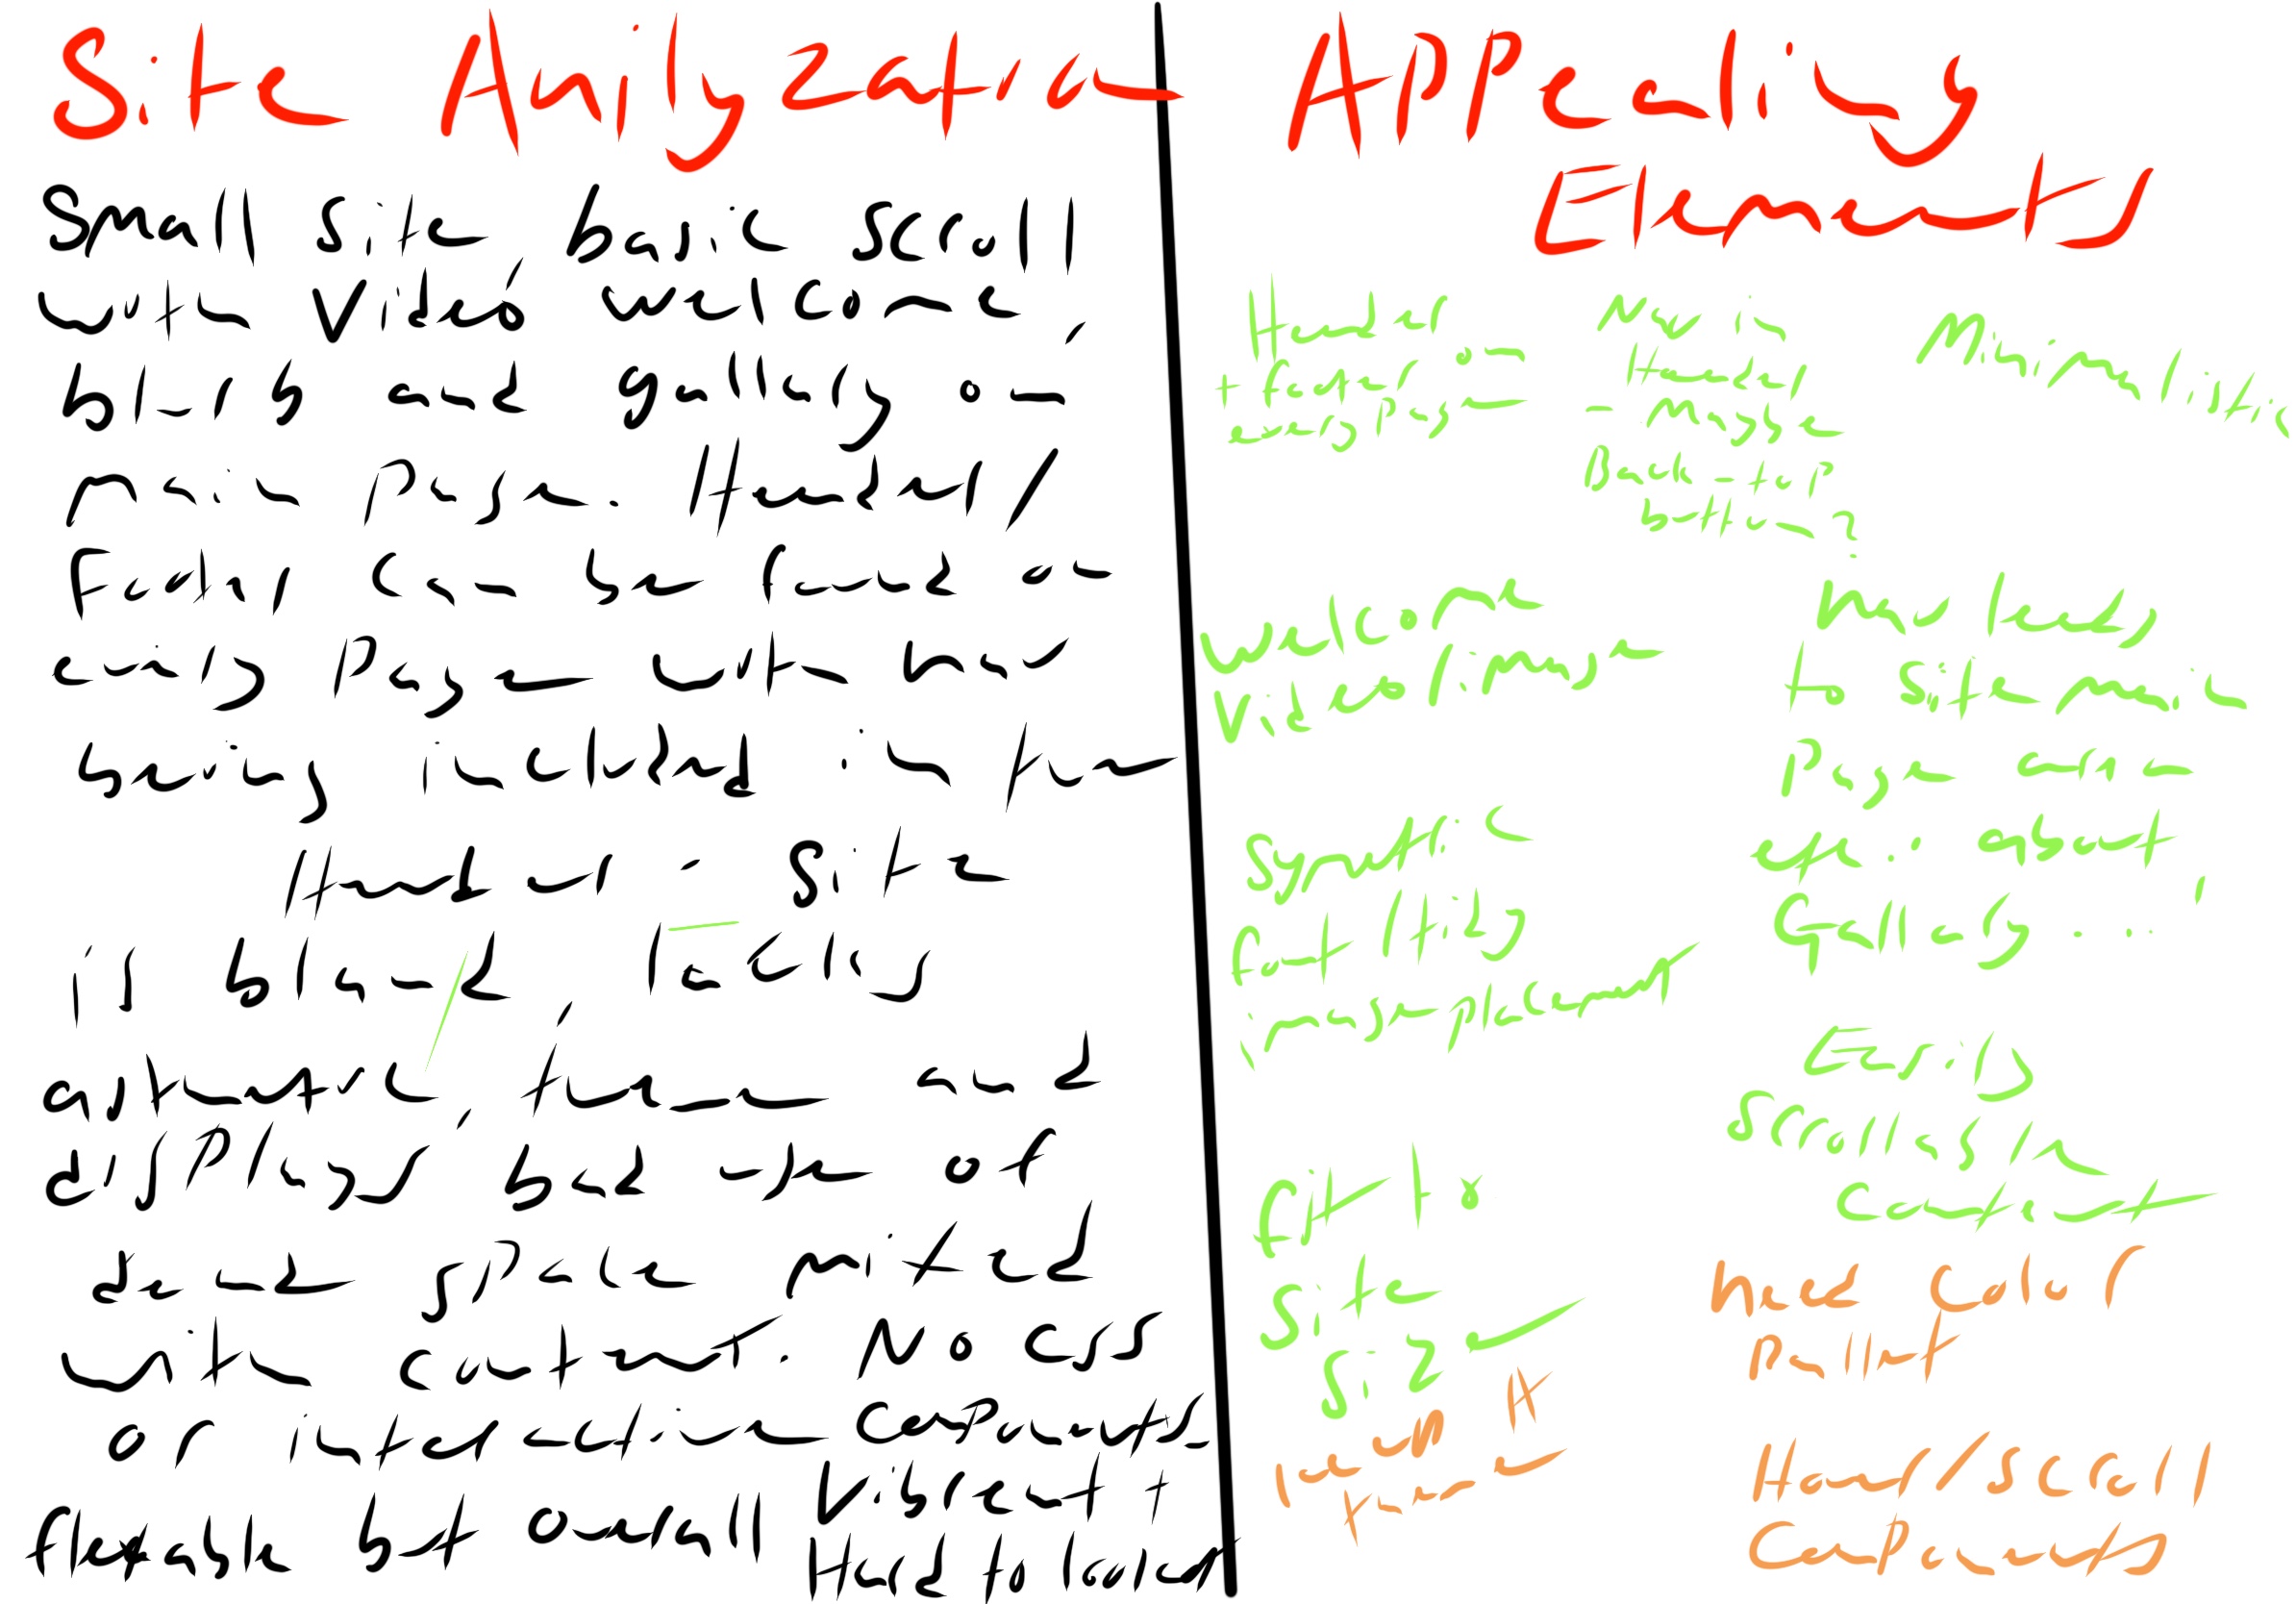 Site Anilyzation
Small site basic scroll
with video welcome,
blurb and gallery on
main page. Header/
Footer can be found on
every page with nav
being included in the
Header - Site
is bland, lacks
asthetic, theme and
displays bad use of
dead space mixed
with content. No CSS
or interactive components
flexable but overall Vibrant +
Hard to look at
Appealing
Elements
Header
+ footer on
every page
Nav in
Header
- Maybe
Back-to-top
button?
Minimalistic
Welcome
Video limage
Nav leads
to site main
page area
etc.: about,
Gallery...
Symetric
font
image placement
Easily
Scrollable
Content
fit to
Site
Size
Need color
Pallet
A
theme
Hover/Scroll
Components